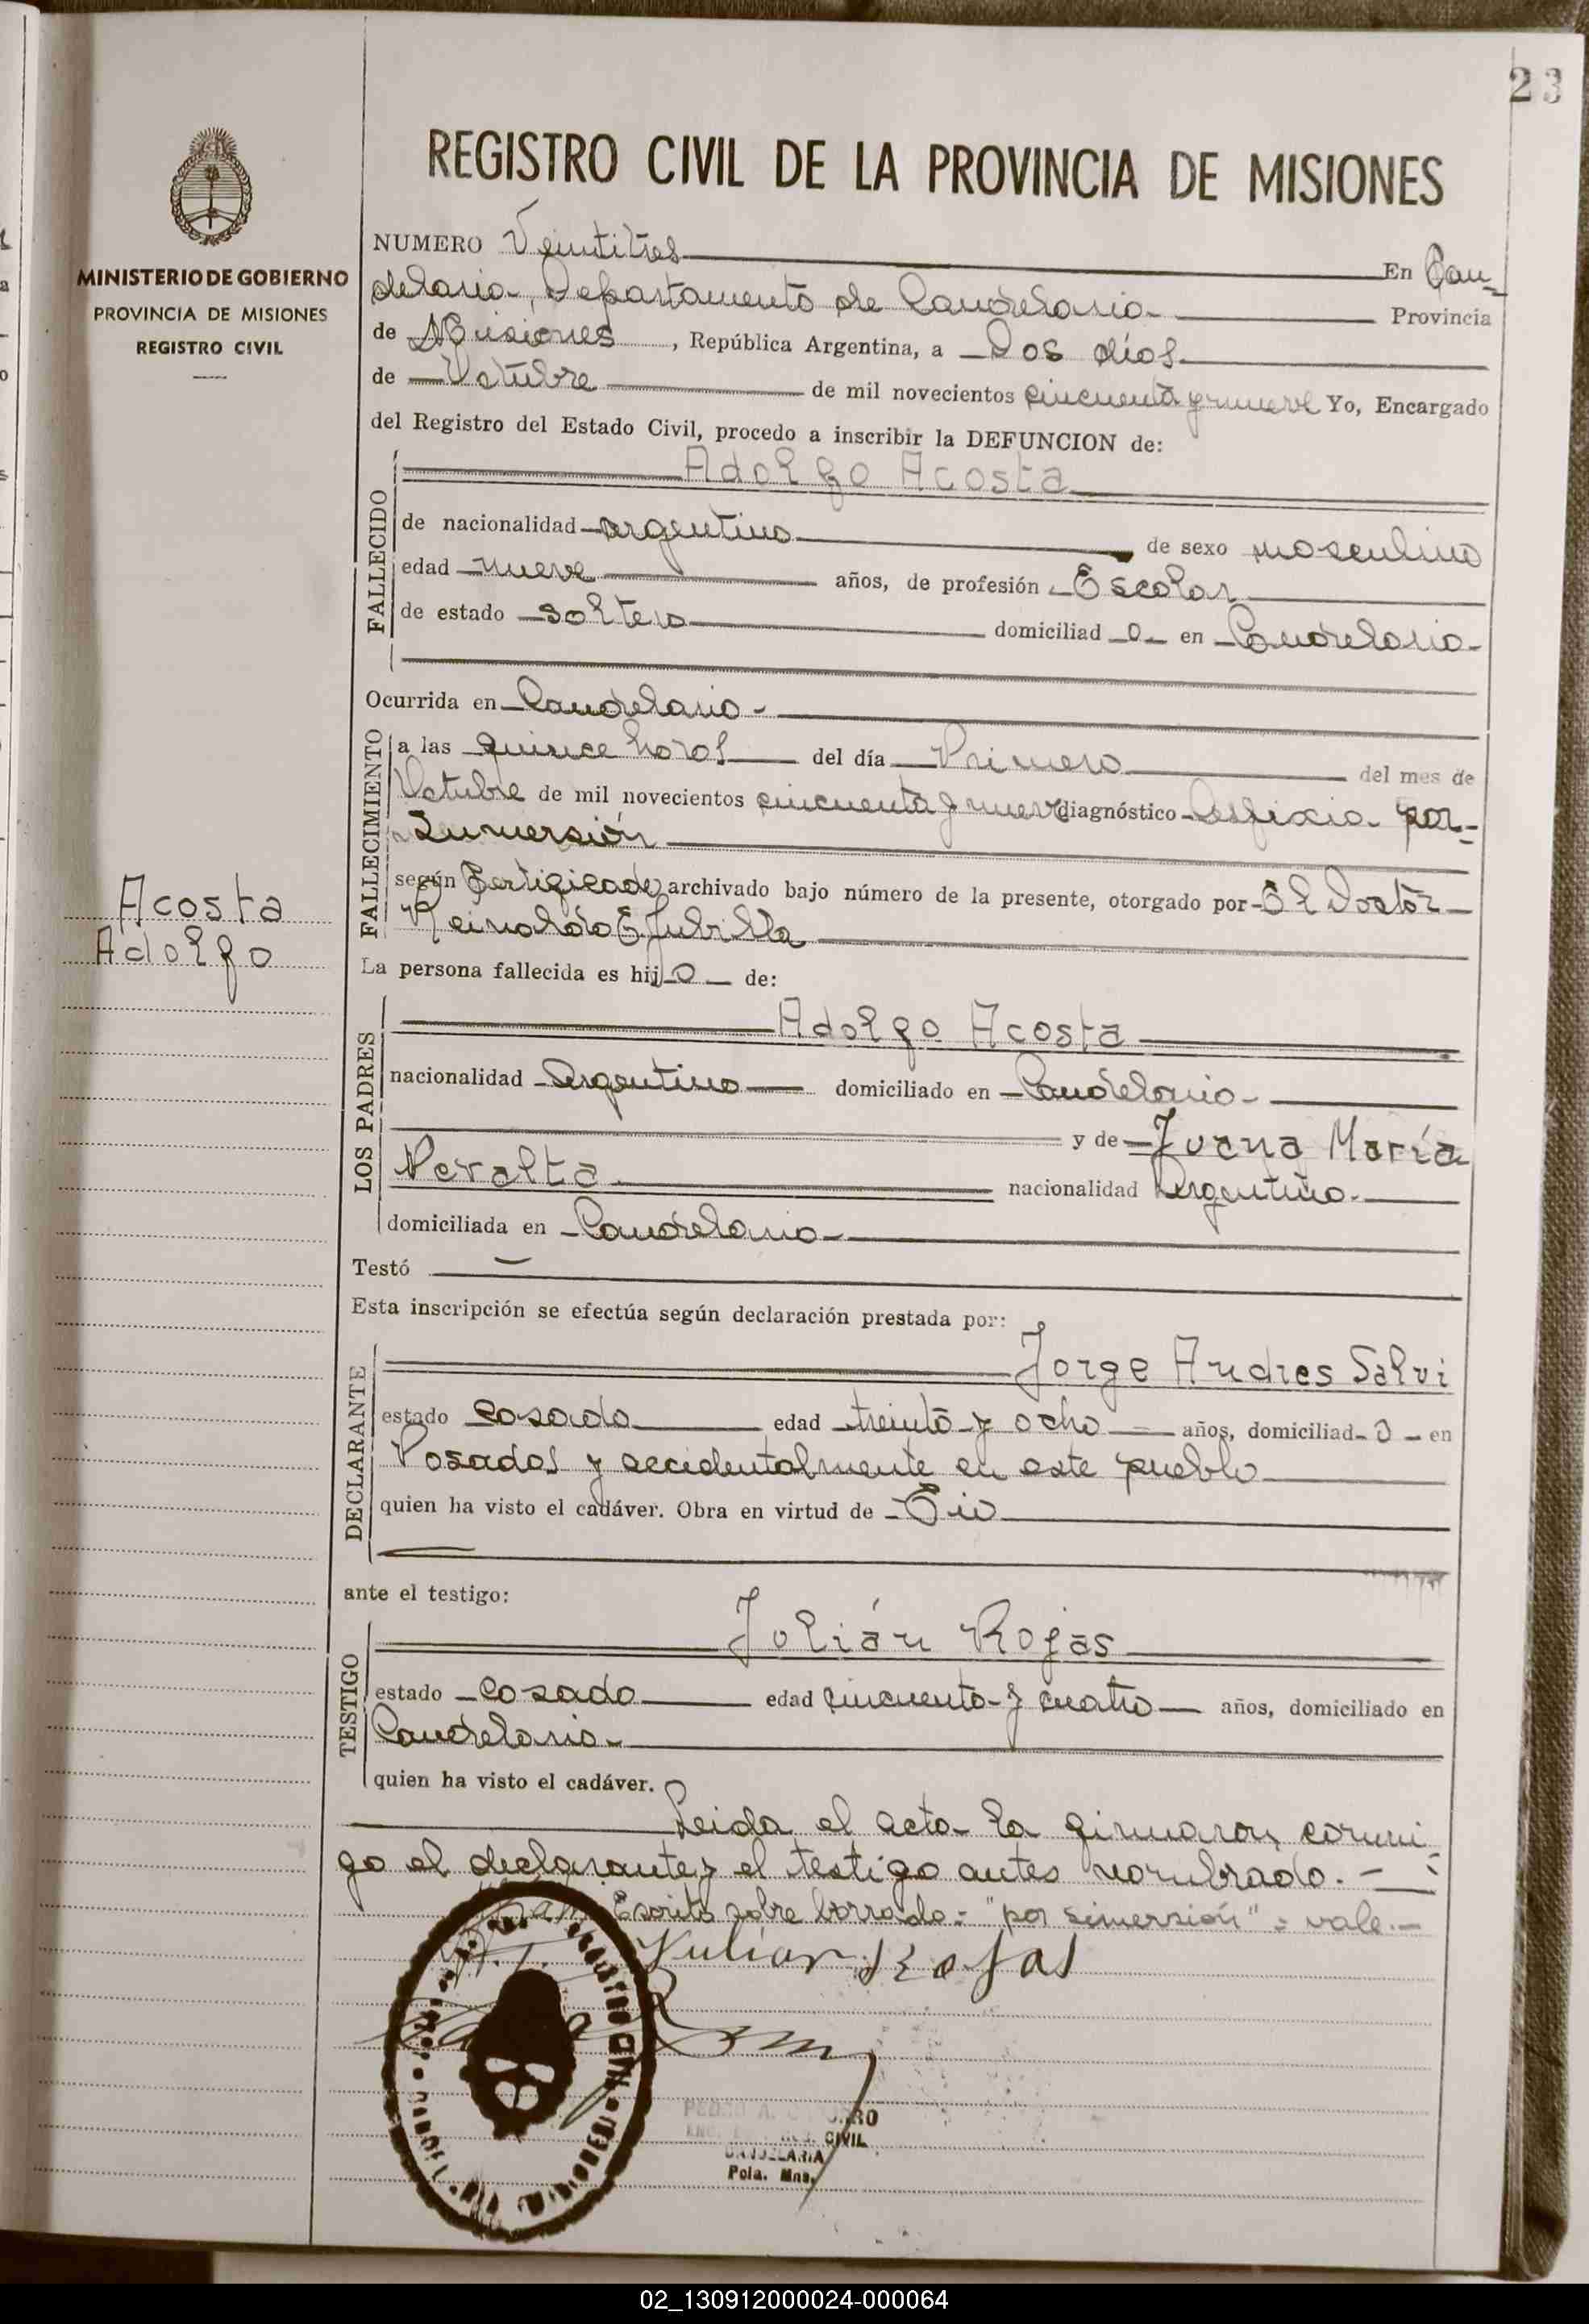 23
REGISTRO CIVIL DE LA PROVINCIA DE MISIONES
MINISTERIO DE GOBIERNO
PROVINCIA DE MISIONES
REGISTRO CIVIL
NUMERO Veintitres En Can-
delaria, Departamento de Candelaria Provincia
de Misiones, República Argentina, a Dos días
de Octubre de mil novecientos cincuenta y nueve Yo, Encargado
del Registro del Estado Civil, procedo a inscribir la DEFUNCION de:
FALLECIDO
Adolfo Acosta
de nacionalidad argentina de sexo masculino
edad nueve años, de profesión Escolar
de estado soltero domiciliad o en Candelaria
Ocurrida en Candelaria
FALLECIMIENTO
a las quince horas del día Primero del mes de
Octubre de mil novecientos cincuenta y nueve diagnóstico Asfixia por
Inmersión
según Certificado archivado bajo número de la presente, otorgado por El Doctor
Reinaldo E
La persona fallecida es hij o de:
Acosta
Adolfo
LOS PADRES
Adolfo Acosta
nacionalidad Argentina domiciliado en Candelaria
y de Juana María
Peralta nacionalidad Argentina
domiciliada en Candelaria
Testó
Esta inscripción se efectúa según declaración prestada por:
DECLARANTE
Jorge Andres Salvi
estado casado edad treinta y ocho años, domiciliad o en
Posadas y accidentalmente en este pueblo
quien ha visto el cadáver. Obra en virtud de
ante el testigo:
TESTIGO
Julián Rojas
estado casado edad cincuenta y cuatro años, domiciliado en
Candelaria
quien ha visto el cadáver.
Leida el acta la firmaron conmi
go el declarante y el testigo antes nombrado.
Escrito sobre borrado: "por inmersión": vale.
Julian Rojas
CIVIL
CANDELARIA
Pcia. Mns.
02_130912000024-000064